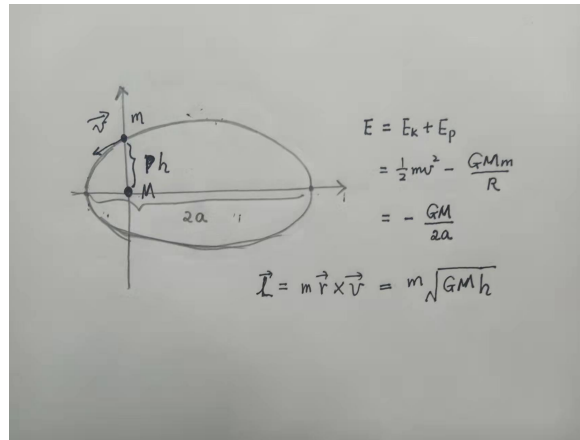 v⃗ m
h
M
2a
E = Eₖ + Eₚ
= ½mv² - GMm/R
= - GM/2a
L⃗ = m r⃗ × v⃗ = m√(GMh)